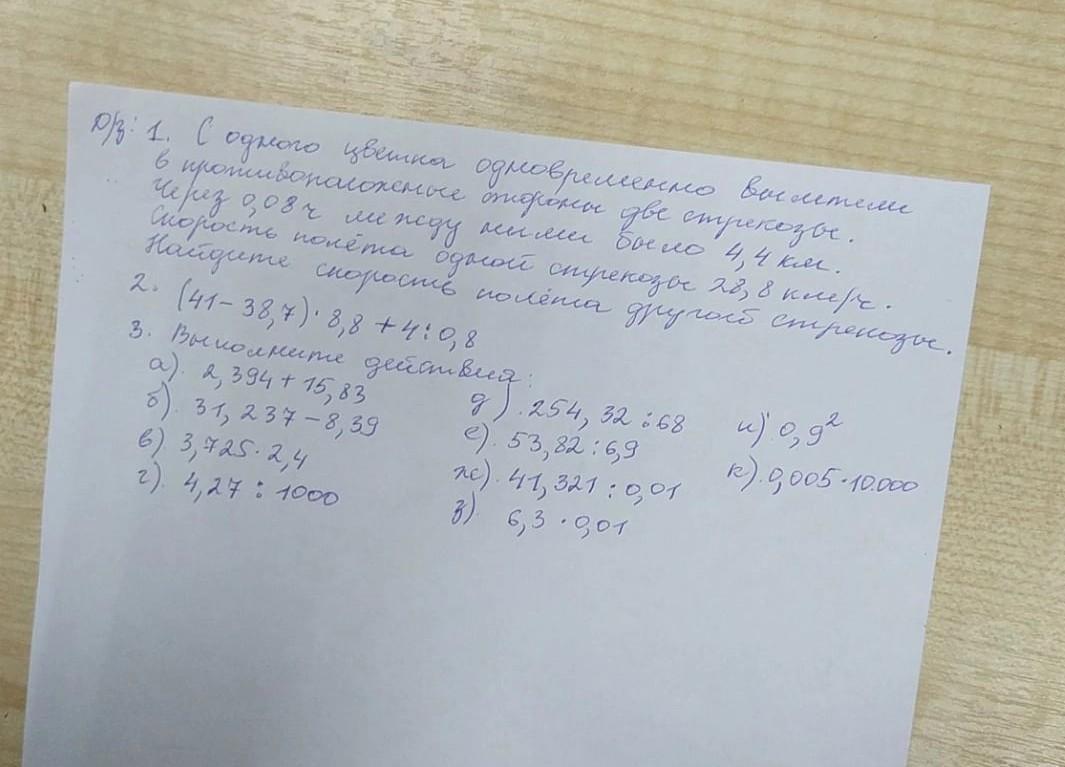 Д/з: 1. С одного цветка одновременно вылетели
в противоположные стороны две стрекозы.
Через 0,08 ч между ними было 4,4 км.
Скорость полёта одной стрекозы 28,8 км/ч.
Найдите скорость полёта другой стрекозы.
2. (41-38,7)·8,8+4:0,8
3. Выполните действия:
а). 2,394+15,83
б). 31,237-8,39
в) 3,725·2,4
г). 4,27:1000
д). 254,32:68
е). 53,82:6,9
ж). 41,321:0,01
з). 6,3·0,01
и) 0,9²
к). 0,005·10.000